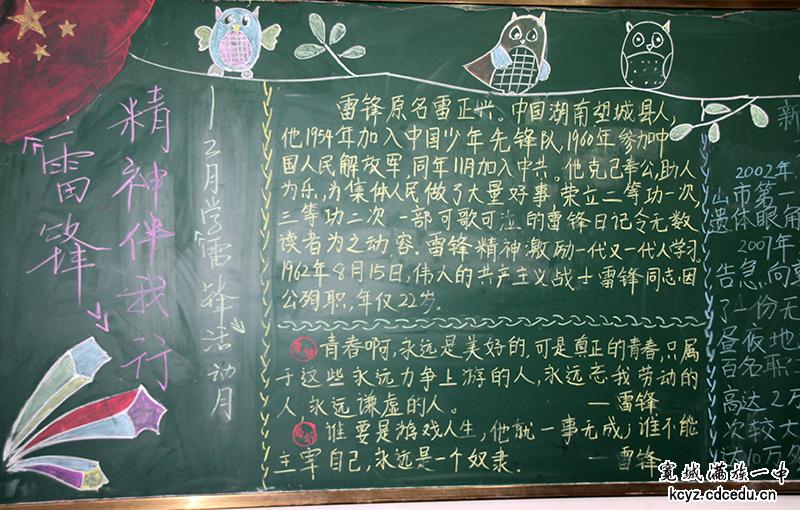 "雷锋"
精神伴我行
一二月学雷锋活动月
雷锋原名雷正兴。中国湖南望城县人,
他1954年加入中国少年先锋队,1960年参加中
国人民解放军,同年11月加入中共。他克己奉公,助人
为乐,为集体人民做了大量好事,荣立二等功一次,
三等功二次 一部可歌可泣的雷锋日记令无数
读者为之动容。雷锋精神激励一代又一代人学习。
1962年8月15日,伟人的共产主义战士雷锋同志,因
公殉职,年仅22岁。
青春啊,永远是美好的,可是真正的青春,只属
于这些永远力争上游的人,永远忘我劳动的
人,永远谦虚的人。 —雷锋
谁要是游戏人生,他就一事无成;谁不能
主宰自己,永远是一个奴隶. —雷锋
新
2002年
山市第一
遗体眼角
2009年
告急,向
了一份无
昼夜地
百名职
高达2万
次较大
达10万
宽城满族一中
kcyz.cdcedu.cn